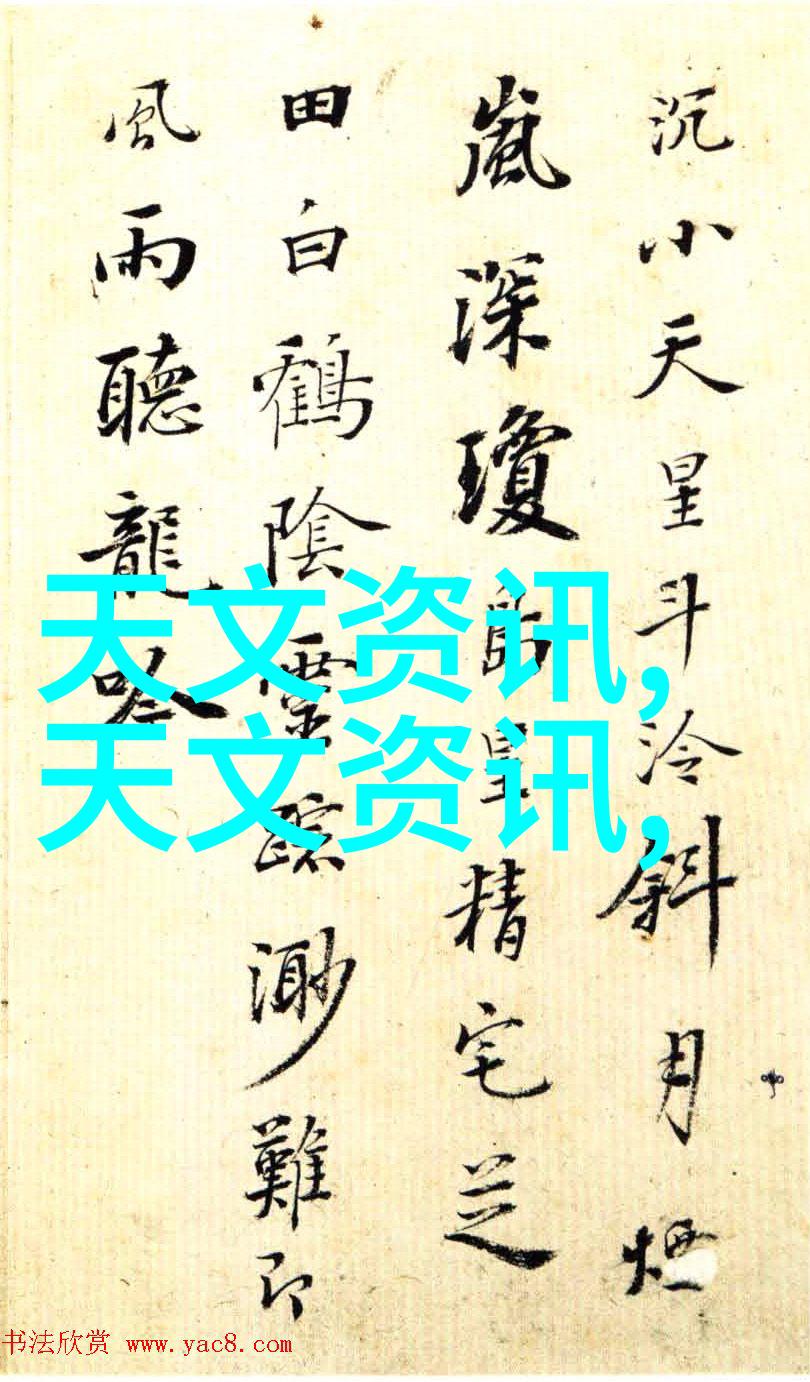 沉小天星斗泠斜月煙
嵐深瓊島皇精宅芝
田白鶴陰靈踪渺難即
風雨聽龍吟
天文资讯,
天文资讯,
书法欣赏 www.yac8.com